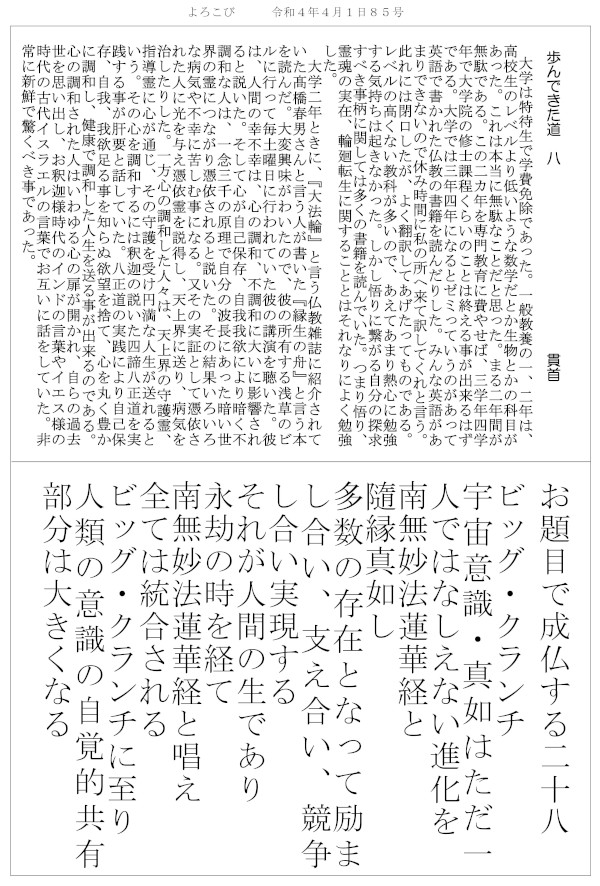 よろこび　　令和４年４月１日８５号
歩んできた道　八　　貫首
大学は特待生で学費免除であった。一般教養の一、二年は、
高校生のレベルより低いような数学だとか生物とかの科目が
あった。これは本当に無駄なことだと思った。まる二年間が
無駄である。この二カ年を専門教育に費やせば、三学年四学
年で大学院の修士課程くらいのことは終える事が出来るはず
である。大学では三年四年になるとゼミっていうのがあって
英語で書かれた仏教の書籍を読んだりした。みんな英語があ
まりできないので休み時間に私の所へ来て訳してくれと言う。
此れには閉口したが、よく翻訳してあげたってものである。
レベルの高くない教科が多いので、あえてあまり熱心に勉強
する気持ちは起きなかった。しかし悟りに繋がる自分の探求
すべき事柄に関しては多くの書籍を読んでいた。つまり悟り、
霊魂の実在、輪廻転生に関することとはそれなりによく勉強
した。
大学二年ときに、『大法輪』と言う仏教雑誌に紹介されて
いた髙橋春男さんと言う人が書いた『縁生の舟』と言う本
を読んだ。大変興味がわいたので、彼の所有する浅草のビ
ルに行って毎土曜日に行われていた彼の講演を聴いた。彼
は、人間の幸不幸は、心の調和、不調和に大いに影響され
ると説いた。そして心が自己保存、自我我欲により暗く不
調和な人は、一念三千の原理で自分の波長にあった暗い世
界の霊につながり憑依されると説いた。その結果いろいろ
な病気や不幸に苦しむ事になる。又その実証として憑依さ
れた人に光を与え憑依霊を説得し、天上界に送り、病気を
治したりした。一方心の調和した人々は、天上界の守護霊、
指導霊に心が通じ、その守護を受け円満な人生が送れると
いう。その心を調和するには釈迦の説いた四諦八正道を実
践する事が肝要と話していた。八正道の実践により自己保
存、自我、我欲足る事を知らぬ欲望を捨て、心を丸く豊か
に調和し、健康で調和した人生を送る事が出来るのである。
心の調和された人はいわゆる心の扉が開かれ、自らの過去
世を思い出し、お釈迦様時代のインドの言葉やイエス様の
時代の古代イスラエルの言葉でお互いに話をしていた。非
常に新鮮で驚くべき事であった。
お題目で成仏する二十八
ビッグ・クランチ
宇宙意識・真如はただ一
人ではなしえない進化を
南無妙法蓮華経と
隨縁真如し
多数の存在となって励ま
し合い、支え合い、競争
し合い実現する
それが人間の生であり
永劫の時を経て
南無妙法蓮華経と唱え
全ては統合される
ビッグ・クランチに至り
人類の意識の自覚的共有
部分は大きくなる